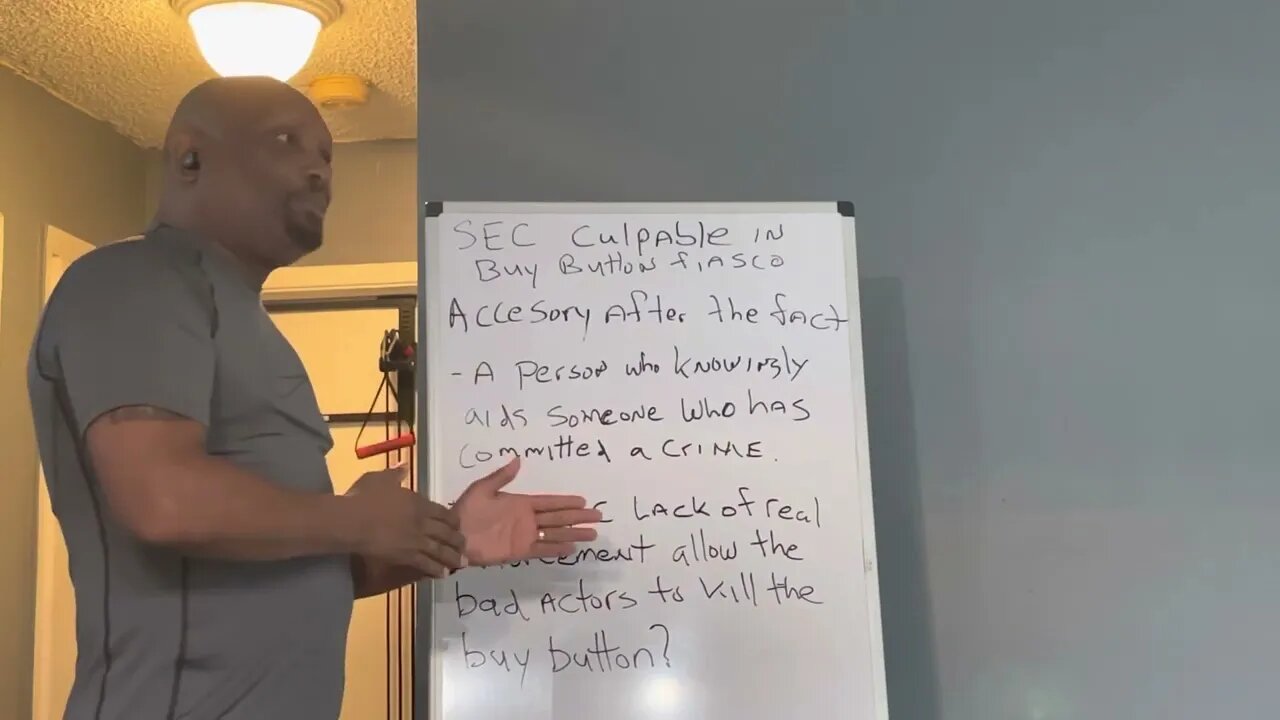 SEC Culpable in
Buy Button fiasco
Accesory After the fact
- A person who knowingly
aids someone who has
committed a crime.
lack of real
allow the
bad actors to kill the
buy button?